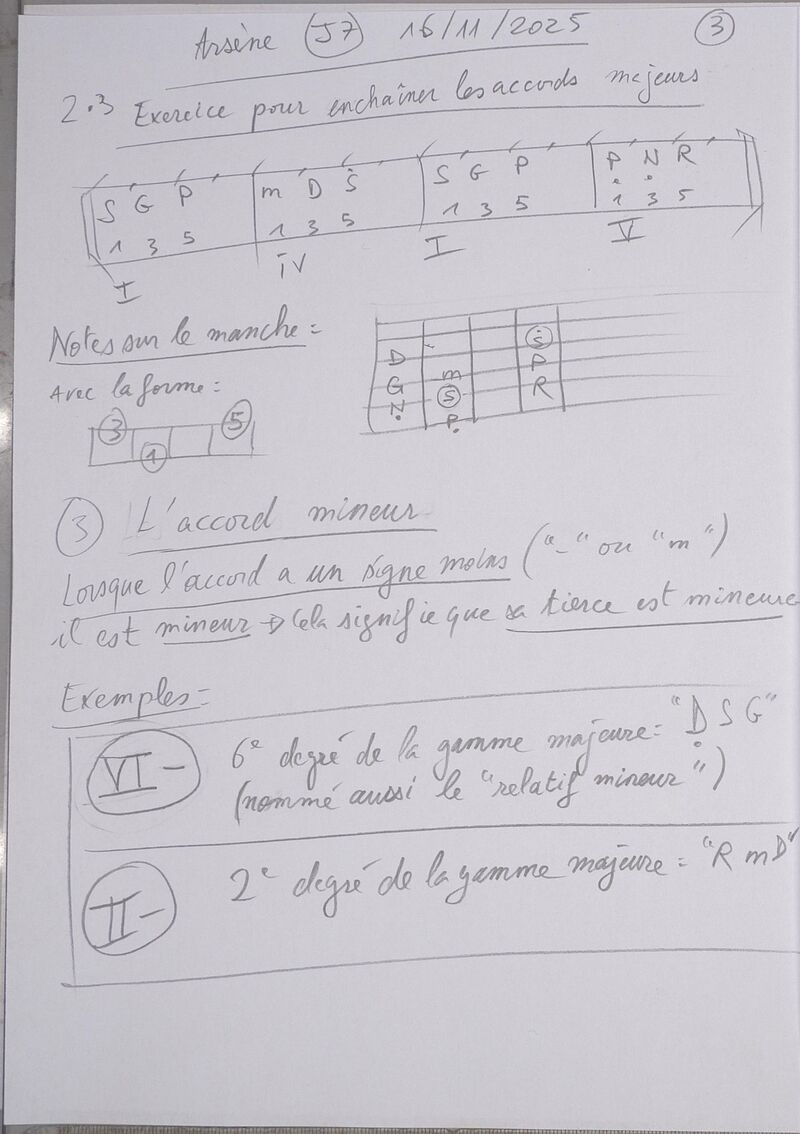 Arsène (J7) 16/11/2025 ③
2.3 Exercice pour enchaîner les accords majeurs
S G P m D Ṡ S G P Ṗ Ṇ R
1 3 5 1 3 5 1 3 5 1 3 5
I IV I V
Notes sur le manche =
Avec la forme =
3 5
1
Ṡ
D P
G m R
Ṇ S
Ṗ
③ L'accord mineur
Lorsque l'accord a un signe moins ("-" ou "m")
il est mineur → Cela signifie que sa tierce est mineure
Exemples =
VI- 6e degré de la gamme majeure = "Ḍ S G"
(nommé aussi le "relatif mineur")
II- 2e degré de la gamme majeure = "R m D"